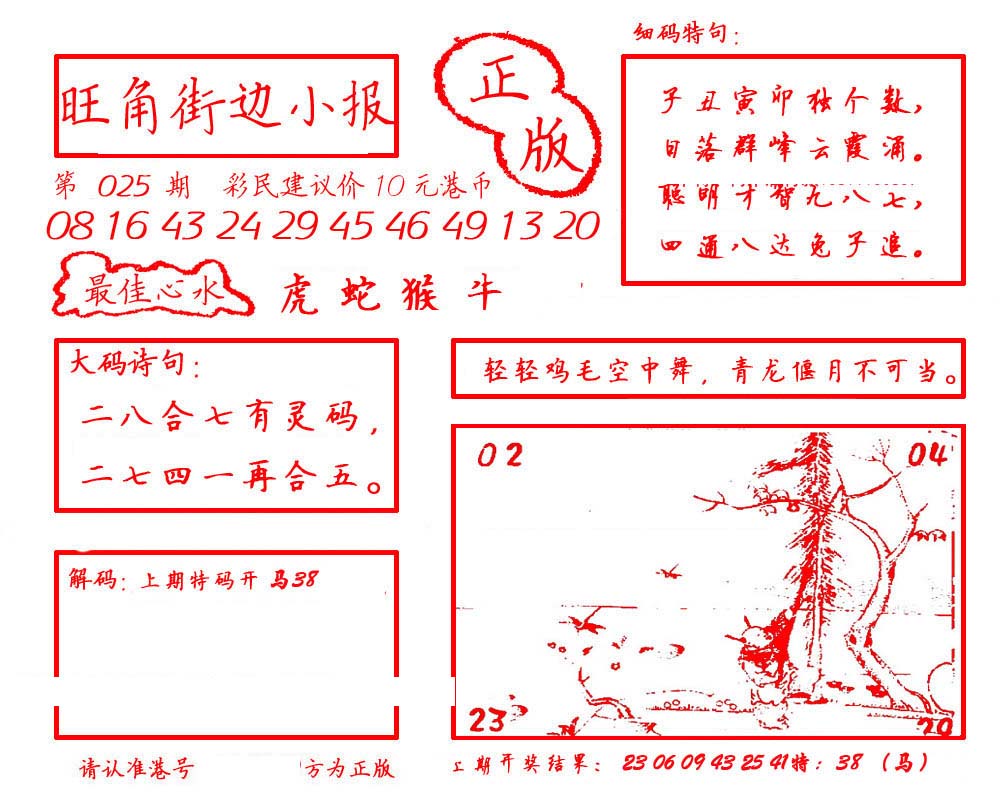 细码特句：
旺角街边小报
正版
子丑寅卯独个数，
日落群峰云霞涌。
聪明才智九八七，
四通八达兔子追。
第 025 期 彩民建议价 10 元港币
08 16 43 24 29 45 46 49 13 20
最佳心水 虎 蛇 猴 牛
大码诗句：
二八合七有灵码，
二七四一再合五。
轻轻鸡毛空中舞，青龙偃月不可当。
02 04
23 20
解码：上期特码开 马38
请认准港号 方为正版
上期开奖结果： 23 06 09 43 25 41特：38 （马）